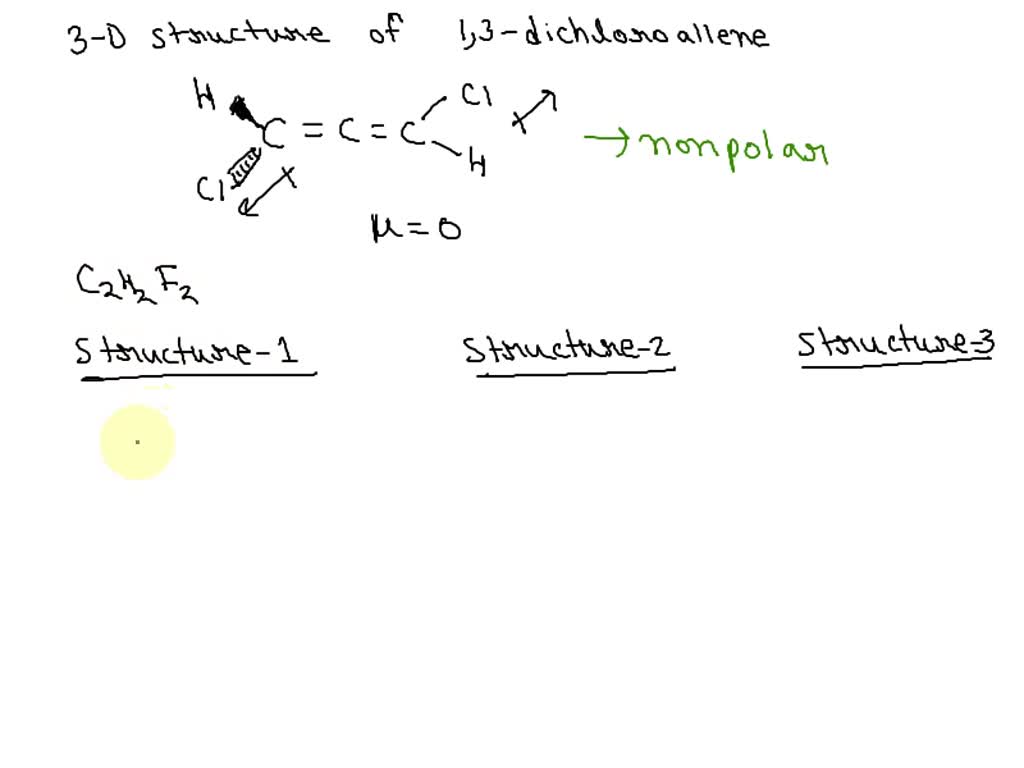 3-D structure of 1,3-dichloroallene
H Cl
C = C = C
→ nonpolar
Cl H
μ = 0
C₂H₂F₂
Structure-1 Structure-2 Structure-3